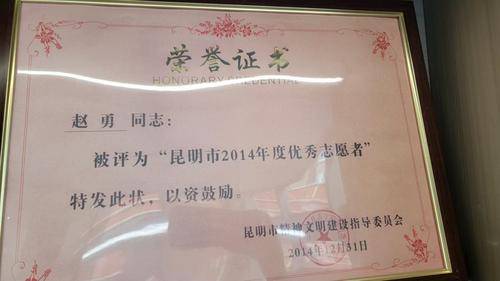 荣誉证书
HONORARY CREDENTIAL
赵勇同志：
被评为“昆明市2014年度优秀志愿者”
特发此状，以资鼓励。
昆明市精神文明建设指导委员会
2014年12月31日